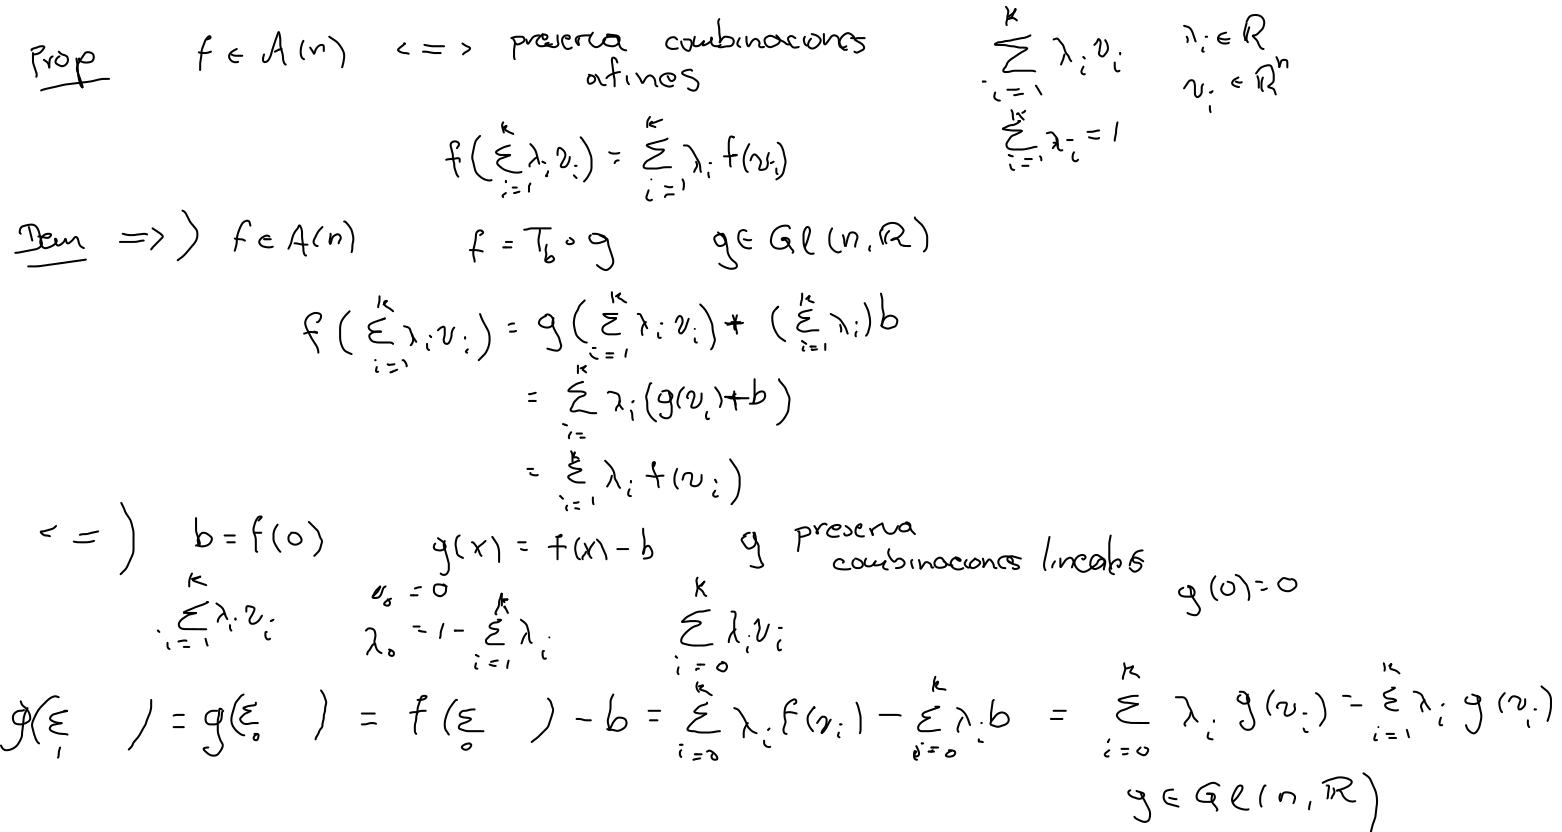 Prop f ∈ A(n) <=> preserva combinaciones afines ∑_{i=1}^{k} λ_i v_i λ_i ∈ ℝ v_i ∈ ℝ^n
∑_{i=1}^{k} λ_i = 1
f(∑_{i=1}^{k} λ_i v_i) = ∑_{i=1}^{k} λ_i f(v_i)
Dem =>) f ∈ A(n) f = T_b ∘ g g ∈ Gl(n, ℝ)
f(∑_{i=1}^{k} λ_i v_i) = g(∑_{i=1}^{k} λ_i v_i) + (∑_{i=1}^{k} λ_i)b
= ∑_{i=}^{k} λ_i (g(v_i)+b)
= ∑_{i=1}^{k} λ_i f(v_i)
<=) b = f(0) g(x) = f(x) - b g preserva combinaciones lineales
g(0) = 0
∑_{i=1}^{k} λ_i v_i v_0 = 0 λ_0 = 1 - ∑_{i=1}^{k} λ_i ∑_{i=0}^{k} λ_i v_i
g(∑_1 ) = g(∑_0 ) = f(∑_0 ) - b = ∑_{i=0}^{k} λ_i f(v_i) - ∑_{i=0}^{k} λ_i b = ∑_{i=0}^{k} λ_i g(v_i) = ∑_{i=1}^{k} λ_i g(v_i)
g ∈ Gl(n, ℝ)